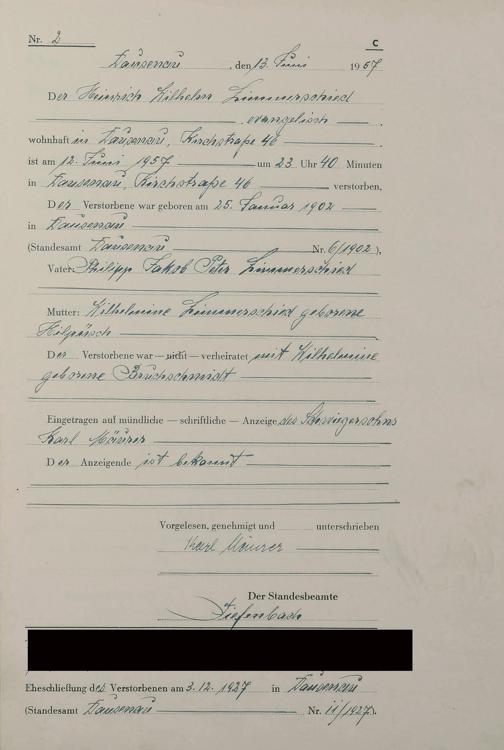 Nr. 2
C
Dausenau, den 13. Juni 1957
Der Heinrich Wilhelm Zimmerschied
evangelisch
wohnhaft in Dausenau, Kirchstraße 46
ist am 12. Juni 1957 um 23 Uhr 40 Minuten
in Dausenau, Kirchstraße 46 verstorben.
Der Verstorbene war geboren am 25. Januar 1902
in Dausenau
(Standesamt Dausenau Nr. 6/1902),
Vater: Philipp Jakob Peter Zimmerschied
Mutter: Wilhelmine Zimmerschied geborene
Der Verstorbene war — nicht — verheiratet mit Wilhelmine
geborene Bruchschmidt
Eingetragen auf mündliche — schriftliche — Anzeige des Schwiegersohns
Karl Maurer
Der Anzeigende ist bekannt
Vorgelesen, genehmigt und unterschrieben
Karl Maurer
Der Standesbeamte
Tiefenbach
Eheschließung des Verstorbenen am 3.12.1927 in Dausenau
(Standesamt Dausenau Nr. 11/1927).